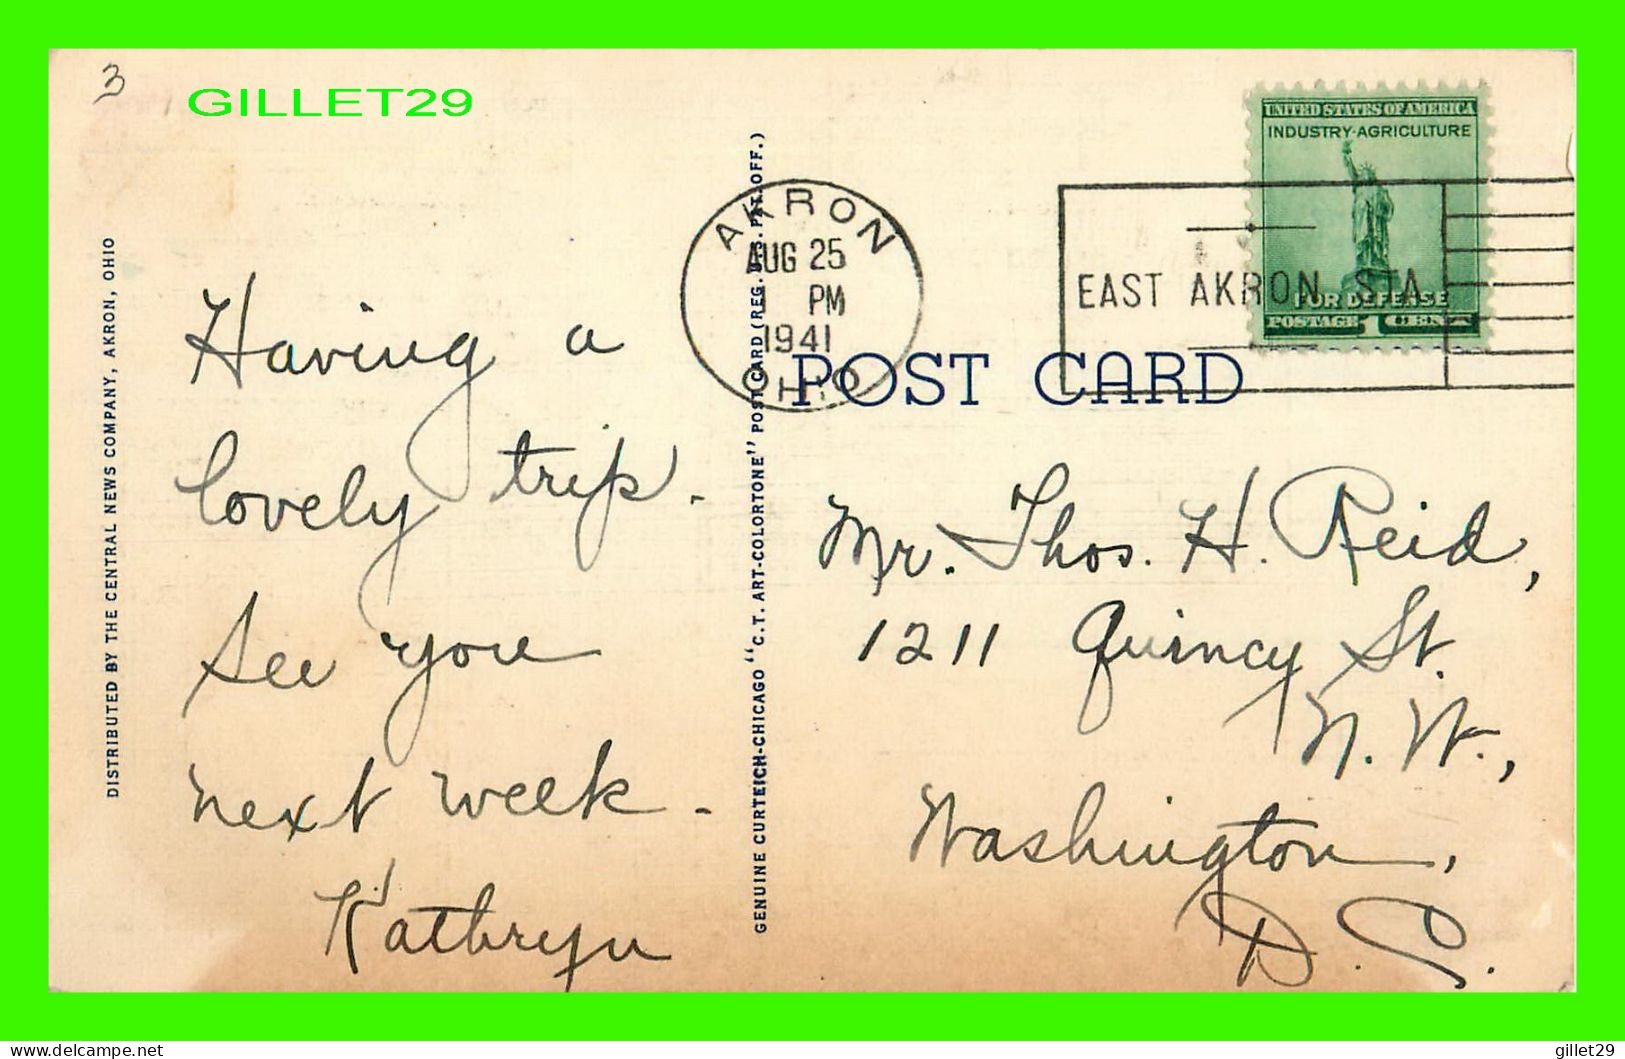 3
GILLET29
DISTRIBUTED BY THE CENTRAL NEWS COMPANY, AKRON, OHIO
Having a
lovely trip.
See you
next week.
Kathryn
GENUINE CURTEICH-CHICAGO "C.T. ART-COLORTONE" POST CARD (REG. U.S. PAT. OFF.)
AKRON
AUG 25
1 PM
1941
OHIO
EAST AKRON STA.
UNITED STATES OF AMERICA
INDUSTRY·AGRICULTURE
FOR DEFENSE
POSTAGE 1 CENT
POST CARD
Mr. Thos. H. Reid,
1211 Quincy St.
N. W.,
Washington,
D. C.
delcampe.net
gillet29